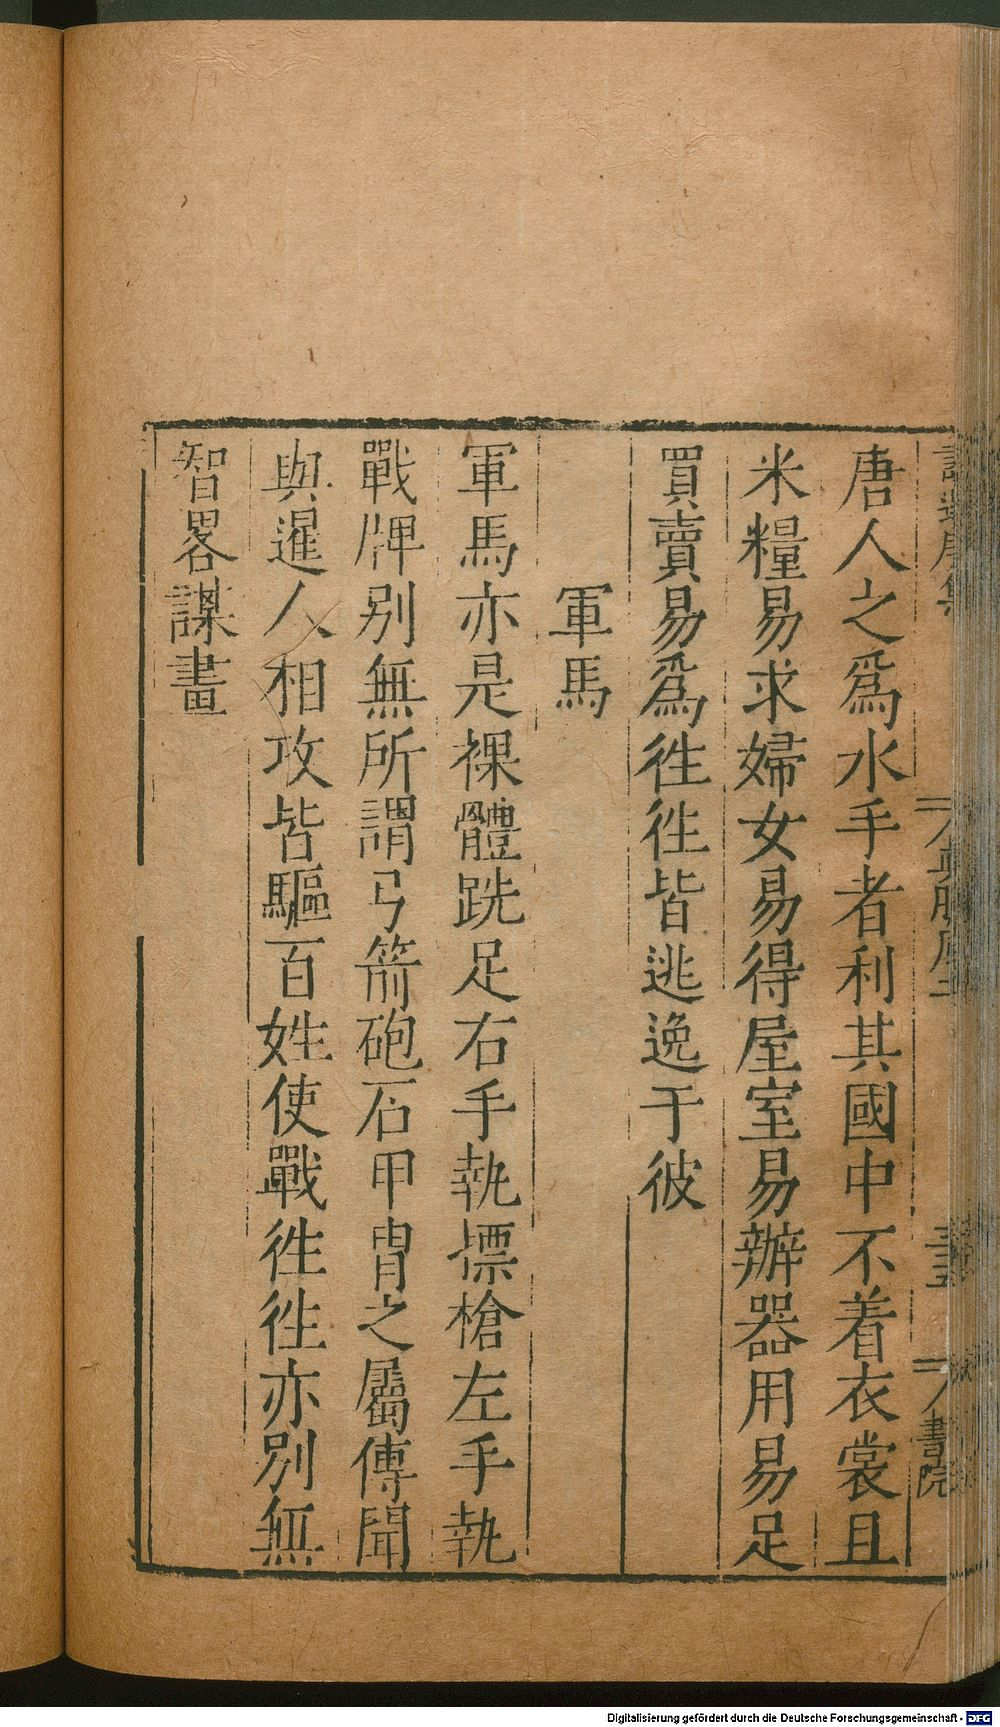 唐人之爲水手者利其國中不着衣裳且
米糧易求婦女易得屋室易辦器用易足
買賣易爲徃徃皆逃逸于彼
軍馬
軍馬亦是裸體跣足右手執摽槍左手執
戰牌别無所謂弓箭砲石甲冑之屬傳聞
與暹人相攻皆驅百姓使戰徃徃亦别無
智畧謀畫
書院
Digitalisierung gefördert durch die Deutsche Forschungsgemeinschaft - DFG